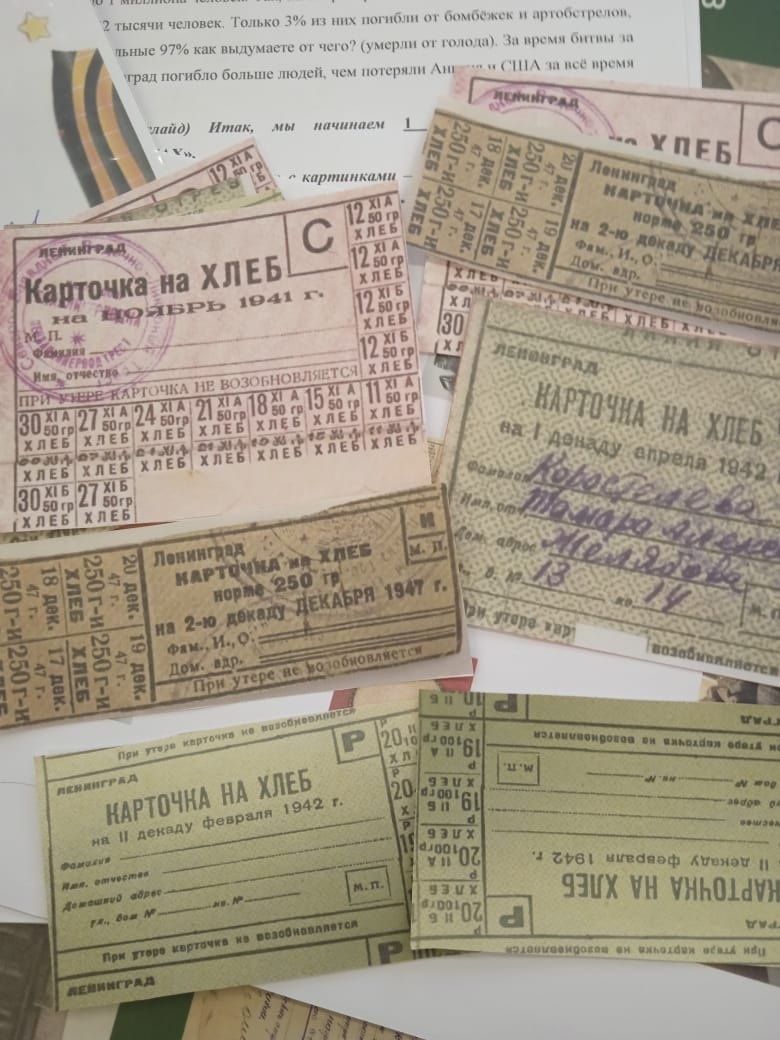 2 тысячи человек. Только 3% из них погибли от бомбёжек и артобстрелов,
льные 97% как выдумаете от чего? (умерли от голода). За время битвы за
град погибло больше людей, чем потеряли и США за всё время
слайд) Итак, мы начинаем 1
с картинками –
ЛЕНИНГРАД
на ХЛЕБ
С
Ленинград
КАРТОЧКА на ХЛЕБ
норме 250 гр
на 2-ю декаду ДЕКАБРЯ
Фам., И., О.
Дом. адр.
При утере не возобновля
20 дек. 19 дек.
47 г. 47 г.
250 г-и 250 г-и
ХЛЕБ ХЛЕБ
18 дек. 17 дек.
47 г. 47 г.
250 г-и 250 г-и
ХЛЕБ ХЛЕБ
12 XI
50 гр
ЛЕНИНГРАД
С
Карточка на ХЛЕБ
на НОЯБРЬ 1941 г.
М. П.
Фамилия
Имя, отчество
ПРИ УТЕРЕ КАРТОЧКА НЕ ВОЗОБНОВЛЯЕТСЯ
12 XI А 50 гр
ХЛЕБ
12 XI А 50 гр
ХЛЕБ
12 XI Б 50 гр
ХЛЕБ
12 XI Б 50 гр
ХЛЕБ
30 XI А 50 гр 27 XI А 50 гр 24 XI А 50 гр 21 XI А 50 гр 18 XI А 50 гр 15 XI А 50 гр 11 XI А 50 гр
ХЛЕБ ХЛЕБ ХЛЕБ ХЛЕБ ХЛЕБ ХЛЕБ ХЛЕБ
ХЛЕБ ХЛЕБ ХЛЕБ ХЛЕБ ХЛЕБ ХЛЕБ ХЛЕБ
30 XI Б 50 гр 27 XI Б 50 гр
ХЛЕБ ХЛЕБ
ЛЕНИНГРАД
КАРТОЧКА НА ХЛЕБ
на I декаду апреля 1942
Фамилия Коростелева
Имя, от Тамара Алекс
Дом. адрес Желябова
д. № 13 кв. 14
При утере кар возобновляется
Ленинград
КАРТОЧКА на ХЛЕБ
норме 250 гр
на 2-ю декаду ДЕКАБРЯ 1947 г.
Фам., И., О.
Дом. адр.
При утере не возобновляется
И
М. П.
20 дек. 19 дек.
47 г. 47 г.
250 г-и 250 г-и
ХЛЕБ ХЛЕБ
18 дек. 17 дек.
47 г. 47 г.
250 г-и 250 г-и
При утере карточка не возобновляется
ЛЕНИНГРАД
Р
КАРТОЧКА НА ХЛЕБ
на II декаду февраля 1942 г.
Фамилия
Имя, отчество
Домашний адрес
ул., дом № кв. №
М. П.
При утере карточка не возобновляется
ЛЕНИНГРАД
Р
КАРТОЧКА НА ХЛЕБ
II декаду февраля 1942 г.
адрес
дом № кв. №
М. П.
утере карточка не возобновляется
Р
20 II Б 100гр
ХЛЕБ
20 II А 100гр
ХЛЕБ
19 II Б 100гр
ХЛЕБ
19 II А 100гр
ХЛЕБ
Р